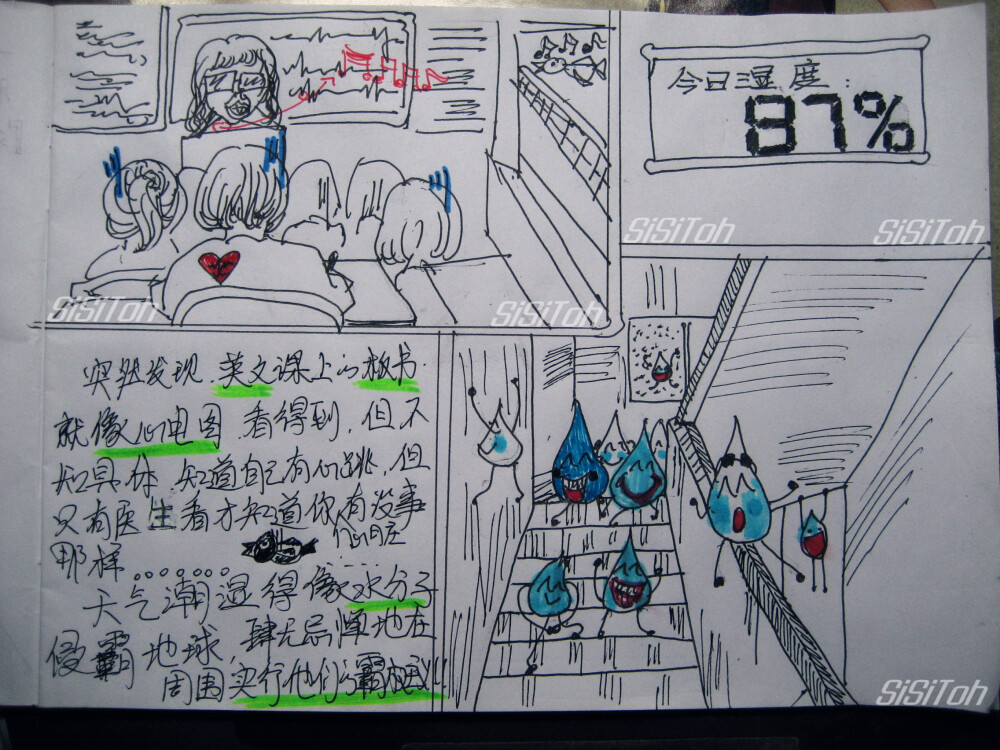 今日湿度:
87%
SiSiToh
SiSiToh
SiSiToh
SiSiToh
突然发现 英文课上的板书
就像心电图 看得到,但不
知具体 知道自己有心跳,但
只有医生看才知道你有没事
心脏
那样。。。。。。
天气潮湿得像水分子
侵霸地球,肆无忌惮地在
周围实行他们的霸权!!
SiSiToh